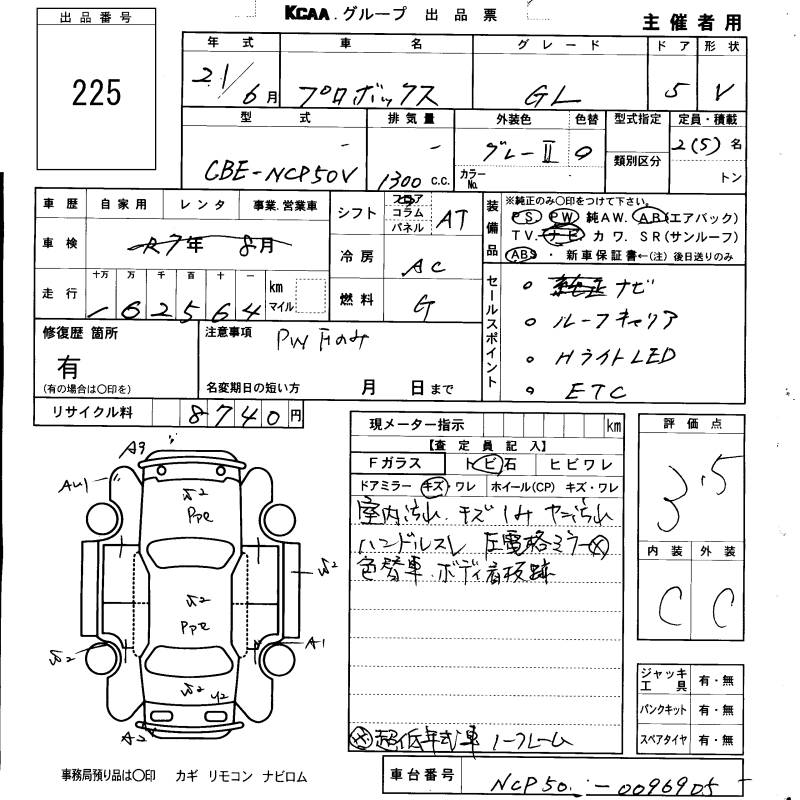 KCAA.グループ 出品票
主催者用
出品番号
225
年式 車名 グレード ドア 形状
21/6月 プロボックス GL 5 V
型式 排気量 外装色 色替 型式指定 定員・積載
CBE-NCP50V 1300 c.c. グレーII カラーNo. 類別区分 2(5)名
トン
車歴 自家用 レンタ 事業.営業車
車検 R7年 8月
走行 十万 万 千 百 十 一 km マイル
162564
シフト フロア コラム パネル AT
冷房 AC
燃料 G
装備品 ※純正のみ〇印をつけて下さい。
PS PW 純AW. AB(エアバック)
TV. ナビ カワ. SR(サンルーフ)
ABS ・ 新車保証書←(注)後日送りのみ
セールスポイント
○ 純正ナビ
○ ルーフキャリア
○ HライトLED
○ ETC
修復歴 箇所
有
(有の場合は〇印を)
注意事項
PW Fのみ
名変期日の短い方 月 日まで
リサイクル料 8740円
現メーター指示 km
【査定員記入】
Fガラス トビ石 ヒビワレ
ドアミラー キズ・ワレ ホイール(CP) キズ・ワレ
室内汚れ.キズ.シミ ヤニ汚れ
ハンドルスレ 左電格ミラー×
色替車.ボディ看板跡
※超低年式車 ノークレーム
評価点
3.5
内装 外装
C C
ジャッキ工具 有・無
パンクキット 有・無
スペアタイヤ 有・無
A9
AU1
ppe
ppe
A1
U2
A2
事務局預り品は〇印 カギ リモコン ナビロム
車台番号 NCP50-0096905